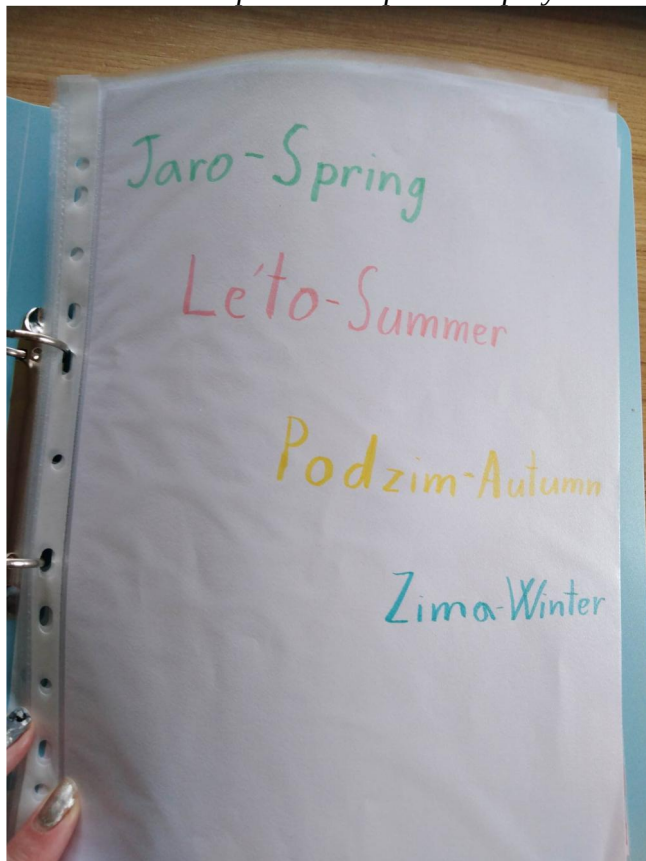 Jaro-Spring
Léto-Summer
Podzim-Autumn
Zima-Winter